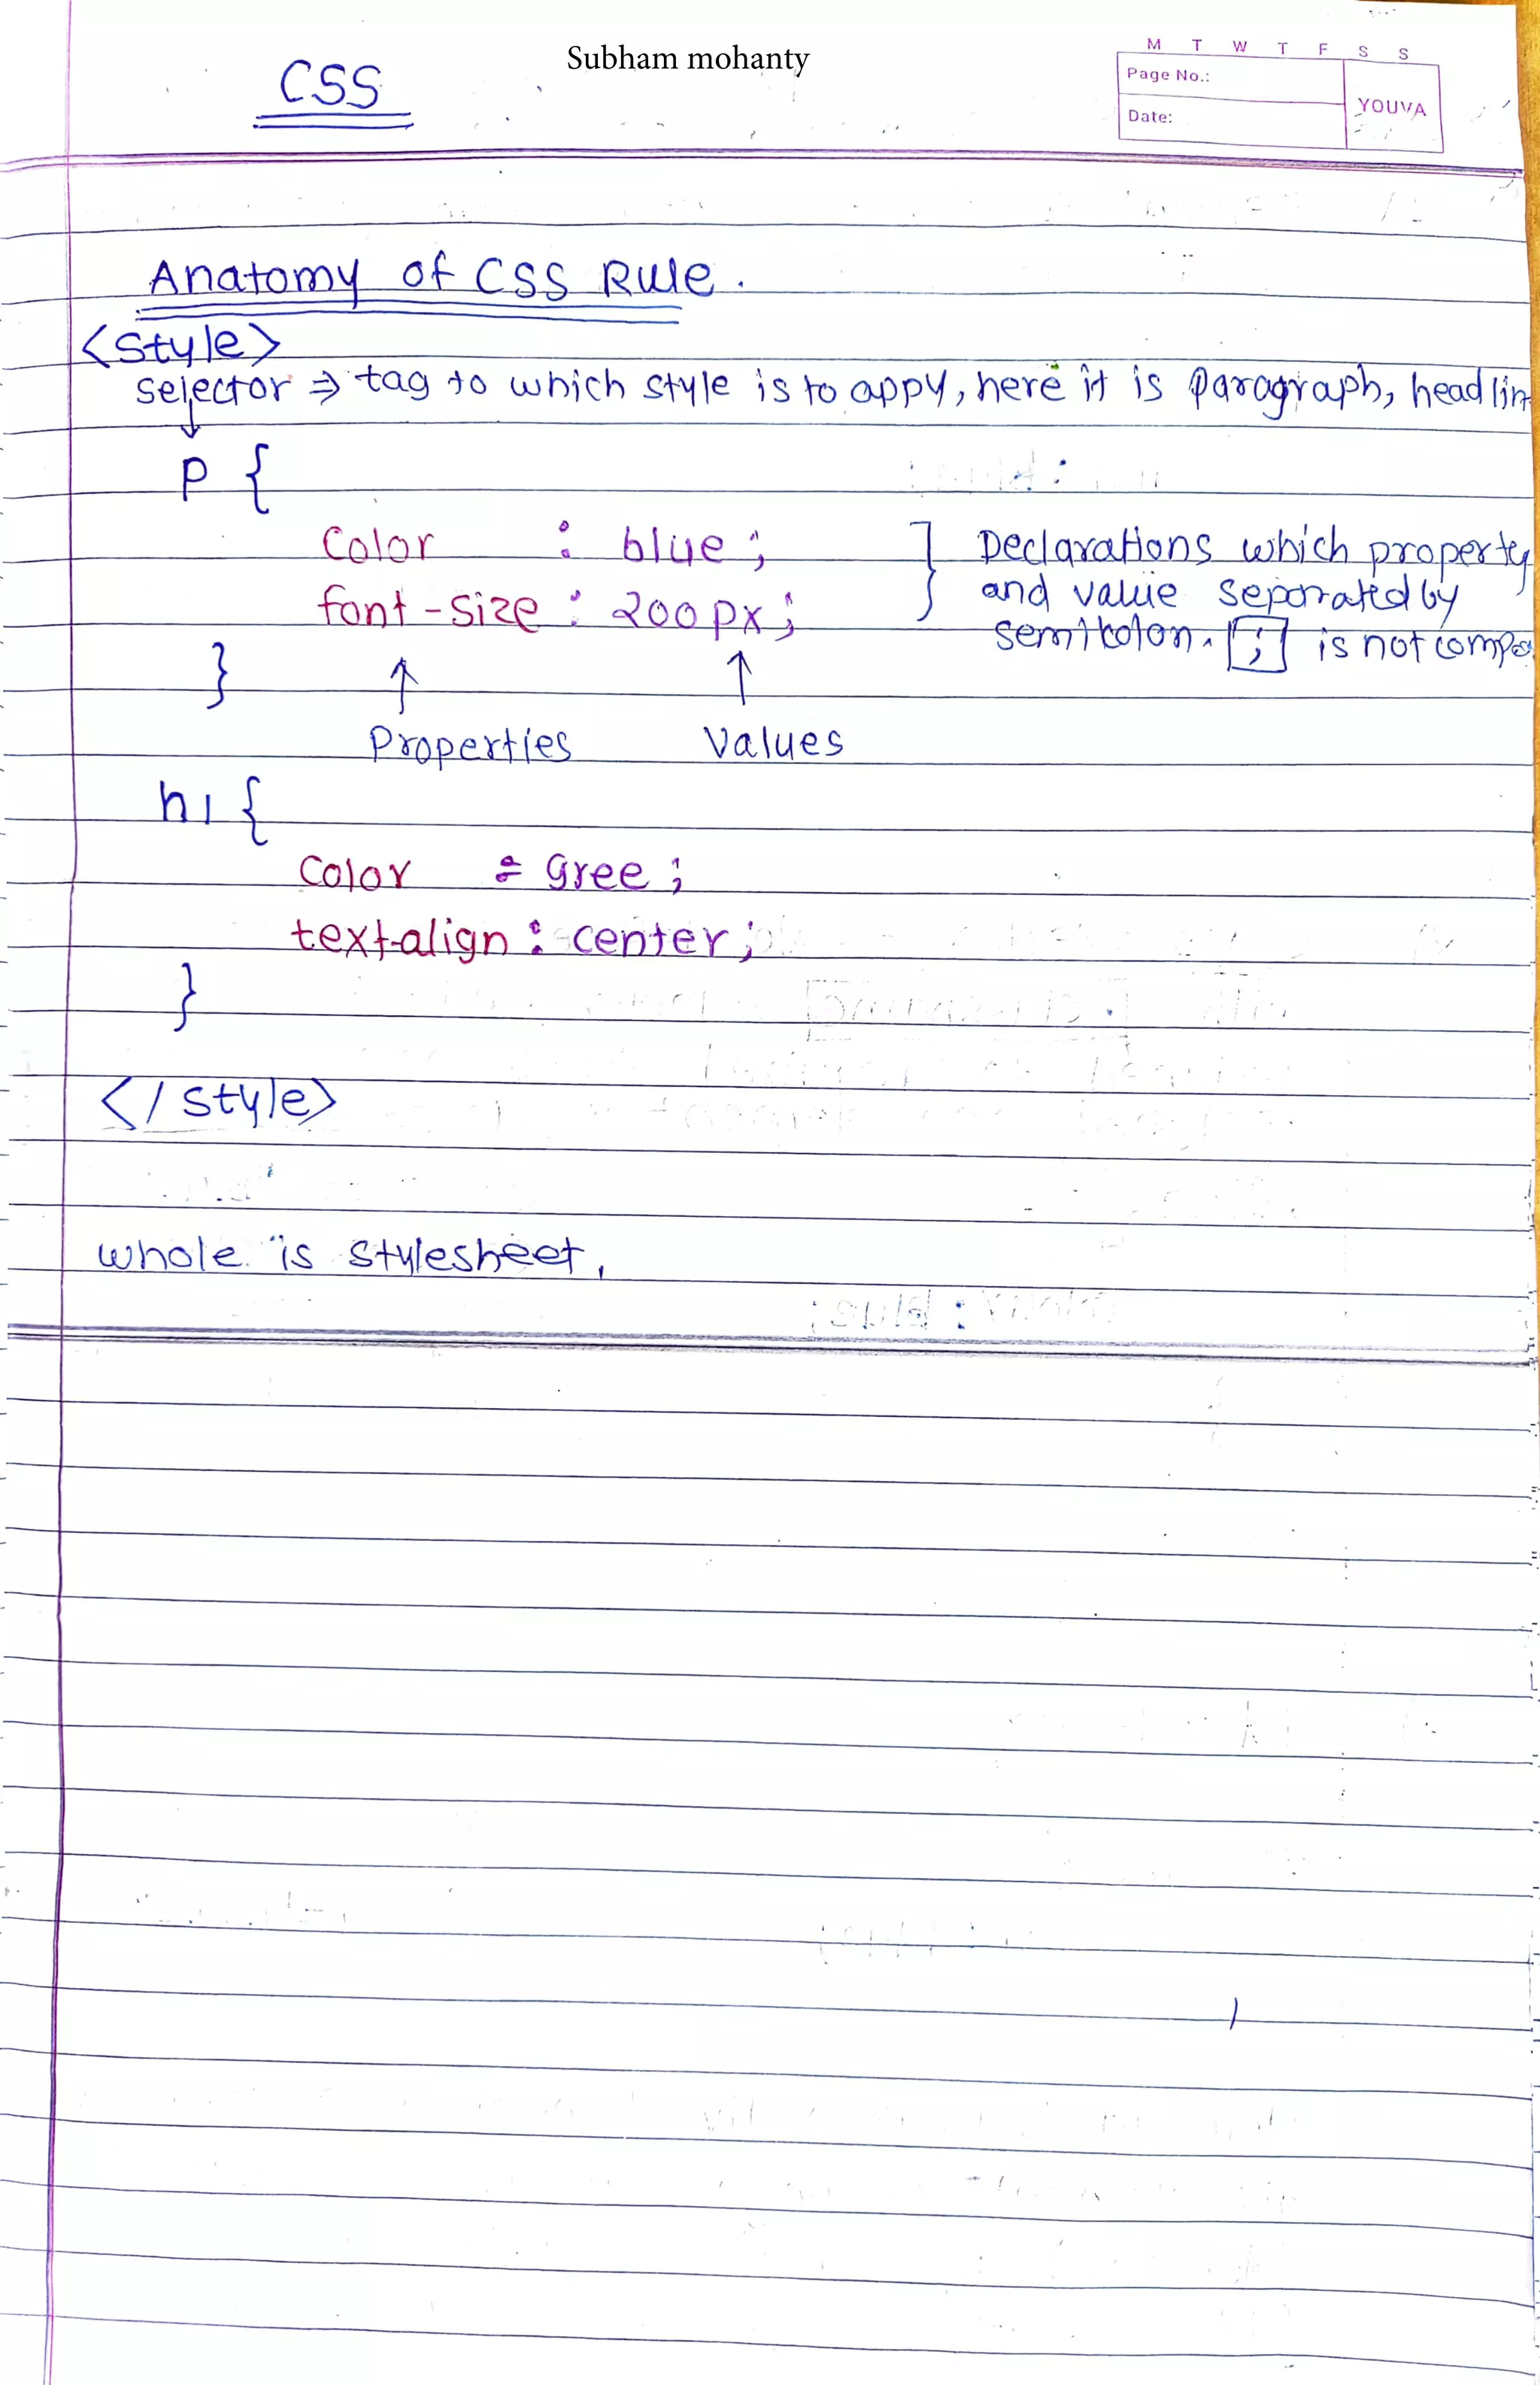 CSS
Subham mohanty
M T W T F S S
Page No.:
Date:
YOUVA
Anatomy of CSS Rule.
<style>
selector ⇒ tag to which style is to appy, here it is paragraph, headlin
p {
Color : blue;
font-size : 200px;
} Declarations which property
and value seporated by
semikolon. ; is not
}
↑ ↑
Properties Values
h1 {
Color : Gree ;
text-align : center;
}
</style>
whole is stylesheet,